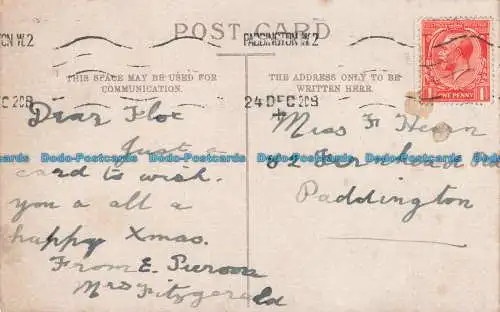 POST CARD
PADDINGTON W.2
TON W.2
THIS SPACE MAY BE USED FOR
COMMUNICATION.
THE ADDRESS ONLY TO BE
WRITTEN HERE.
24 DEC 20
EC 20
ONE PENNY
Dear Floe
Just a
card to wish
you a all a
happy Xmas.
From E.
Mrs Fitzgerald
Miss F
82 Fernhead Rd
Paddington
Dodo-Postcards Dodo-Postcards Dodo-Postcards Dodo-Postcards